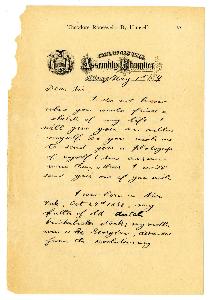 Theodore Roosevelt By Himself
State of New York
Assembly Chamber
Albany, May 1st
Dear Sir:
I do not know
when you wrote from a
sketch of my life. I
will give you an outline
myself. Do you wish
to send you a photograph
of myself?
send you one if you wish
I was born in New
York, Oct 27th 1858; my
father of old dutch
knickerbocker stock; my mother
was a Georgian, descended
from the revolutionary